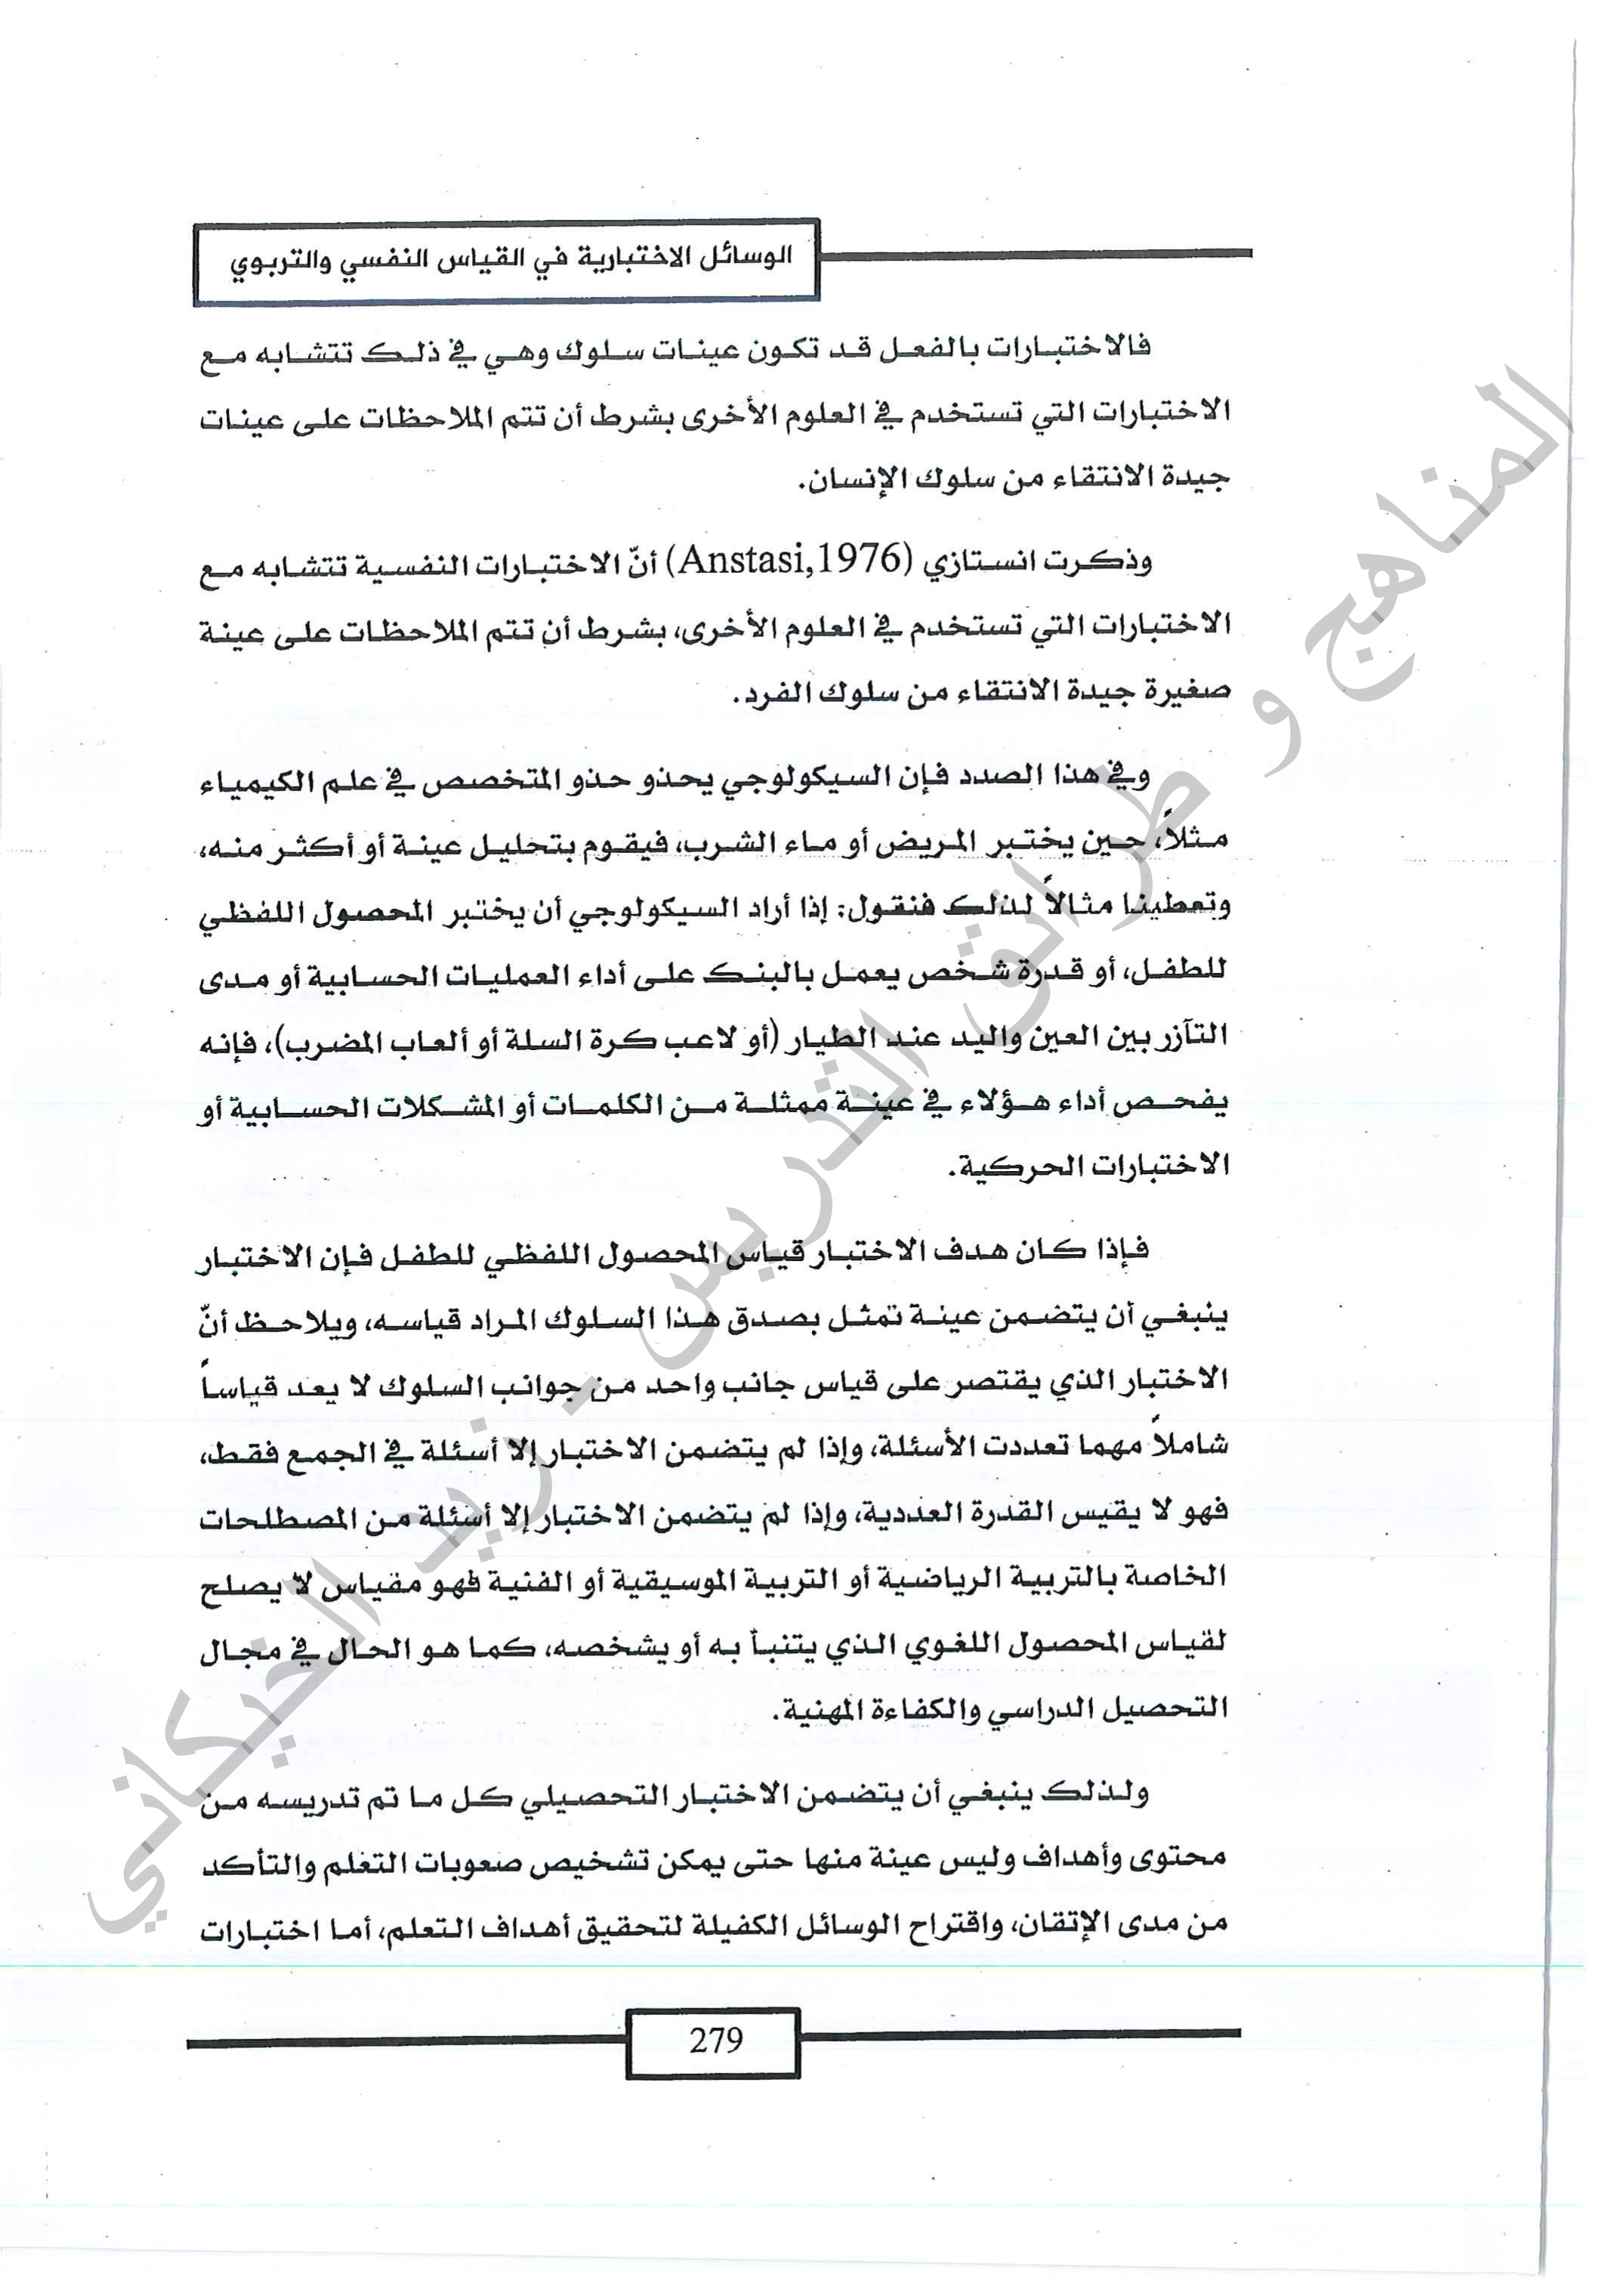 الوسائل الاختبارية في القياس النفسي والتربوي
فالاختبارات بالفعل قد تكون عينات سلوك وهي في ذلك تتشابه مع
الاختبارات التي تستخدم في العلوم الأخرى بشرط أن تتم الملاحظات على عينات
جيدة الانتقاء من سلوك الإنسان.
وذكرت انستازي (Anstasi,1976) أنّ الاختبارات النفسية تتشابه مع
الاختبارات التي تستخدم في العلوم الأخرى، بشرط أن تتم الملاحظات على عينة
صغيرة جيدة الانتقاء من سلوك الفرد.
وفي هذا الصدد فإن السيكولوجي يحذو حذو المتخصص في علم الكيمياء
مثلاً، حين يختبر المريض أو ماء الشرب، فيقوم بتحليل عينة أو أكثر منه،
وتعطينا مثالاً لذلك فنقول: إذا أراد السيكولوجي أن يختبر المحصول اللفظي
للطفل، أو قدرة شخص يعمل بالبنك على أداء العمليات الحسابية أو مدى
التآزر بين العين واليد عند الطيار (أو لاعب كرة السلة أو ألعاب المضرب)، فإنه
يفحص أداء هؤلاء في عينة ممثلة من الكلمات أو المشكلات الحسابية أو
الاختبارات الحركية.
فإذا كان هدف الاختبار قياس المحصول اللفظي للطفل فإن الاختبار
ينبغي أن يتضمن عينة تمثل بصدق هذا السلوك المراد قياسه، ويلاحظ أنّ
الاختبار الذي يقتصر على قياس جانب واحد من جوانب السلوك لا يعد قياساً
شاملاً مهما تعددت الأسئلة، وإذا لم يتضمن الاختبار إلا أسئلة في الجمع فقط،
فهو لا يقيس القدرة العددية، وإذا لم يتضمن الاختبار إلا أسئلة من المصطلحات
الخاصة بالتربية الرياضية أو التربية الموسيقية أو الفنية فهو مقياس لا يصلح
لقياس المحصول اللغوي الذي يتنبأ به أو يشخصه، كما هو الحال في مجال
التحصيل الدراسي والكفاءة المهنية.
ولذلك ينبغي أن يتضمن الاختبار التحصيلي كل ما تم تدريسه من
محتوى وأهداف وليس عينة منها حتى يمكن تشخيص صعوبات التعلم والتأكد
من مدى الإتقان، واقتراح الوسائل الكفيلة لتحقيق أهداف التعلم، أما اختبارات
279
المناهج و طرائق التدريس - زيد الخيكاني